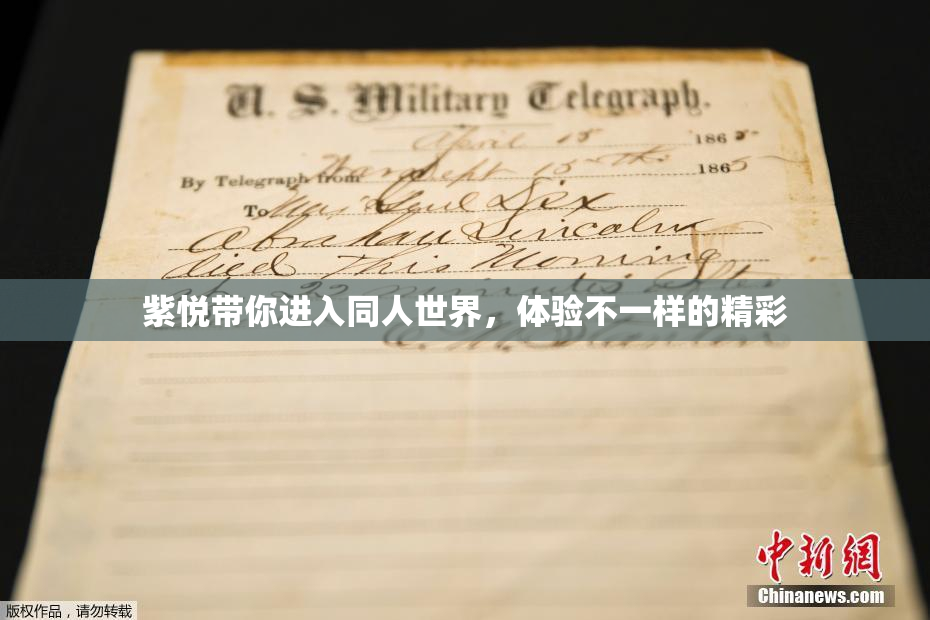 U. S. Military Telegraph.
April 15 1865
By Telegraph from War Dept 15th 1865
To Maj Genl Dix
Abraham Lincoln
died This Morning
at 22 minutes after
紫悦带你进入同人世界，体验不一样的精彩
E. M. Stanton
中新网
Chinanews.com
版权作品，请勿转载